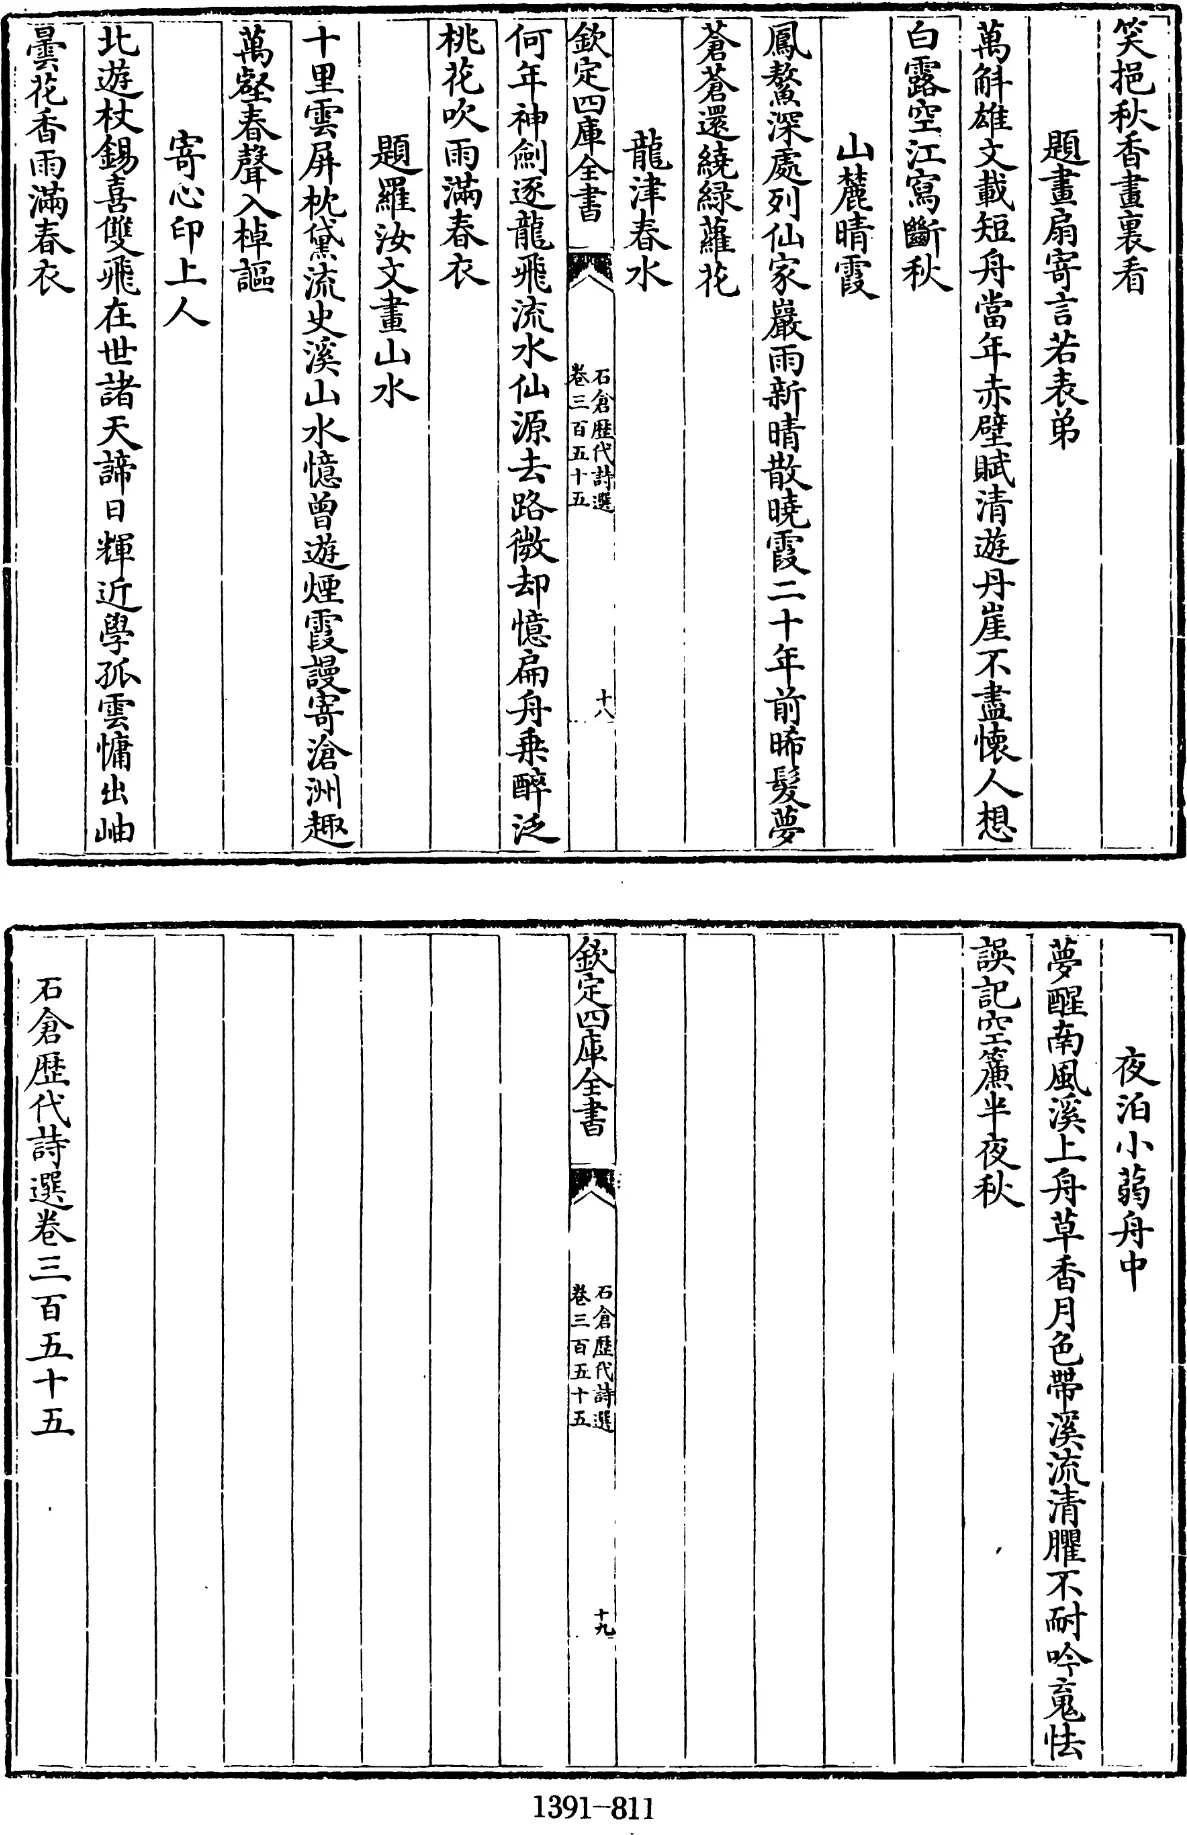 笑挹秋香畫裏看
題畫扇寄言若表弟
萬斛雄文載短舟當年赤壁賦清遊丹崖不盡懐人想
白露空江寫斷秋
山麓晴霞
鳳鰲深處列仙家巖雨新晴散曉霞二十年前晞髮夢
蒼蒼還繞綠蘿花
龍津春水
欽定四庫全書
石倉歴代詩選
卷三百五十五
十八
何年神劍逐龍飛流水仙源去路微却憶扁舟乗醉泛
桃花吹雨滿春衣
題羅汝文畫山水
十里雲屏枕黛流史溪山水憶曾遊煙霞謾寄滄洲趣
萬壑春聲入棹謳
寄心印上人
北遊杖錫喜雙飛在世諸天諦日輝近學孤雲慵出岫
曇花香雨滿春衣
夜泊小蒻舟中
夢醒南風溪上舟草香月色帶溪流清臞不耐吟䰟怯
誤記空簾半夜秋
欽定四庫全書
石倉歷代詩選
卷三百五十五
十九
石倉歴代詩選卷三百五十五
1391-811